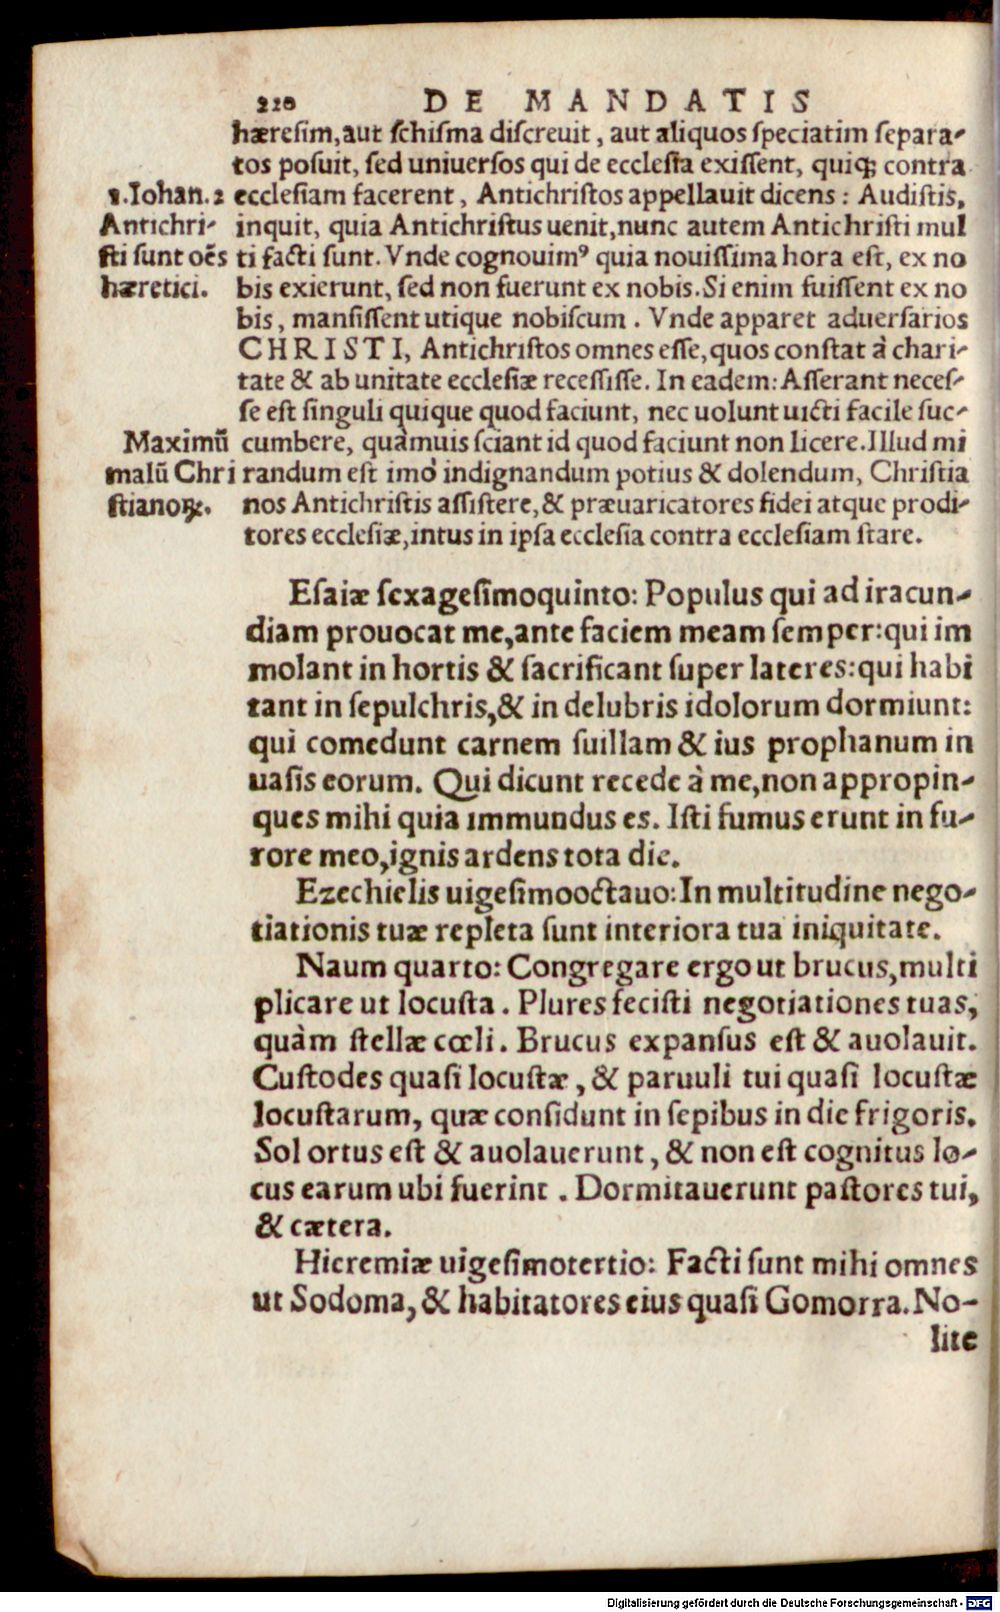 220 DE MANDATIS
hæresim, aut schisma discreuit, aut aliquos speciatim separa-
tos posuit, sed uniuersos qui de ecclesia exissent, quiqꝫ contra
1. Iohan. 2 ecclesiam facerent, Antichristos appellauit dicens: Audistis,
Antichri- inquit, quia Antichristus uenit, nunc autem Antichristi mul
sti sunt oẽs ti facti sunt. Vnde cognouimꝰ quia nouissima hora est, ex no
hæretici. bis exierunt, sed non fuerunt ex nobis. Si enim fuissent ex no
bis, mansissent utique nobiscum. Vnde apparet aduersarios
CHRISTI, Antichristos omnes esse, quos constat à chari-
tate & ab unitate ecclesiæ recessisse. In eadem: Asserant neces-
se est singuli quique quod faciunt, nec uolunt uicti facile suc-
Maximũ cumbere, quàmuis sciant id quod faciunt non licere. Illud mi
malũ Chri randum est imò indignandum potius & dolendum, Christia
stianoꝝ. nos Antichristis assistere, & præuaricatores fidei atque prodi-
tores ecclesiæ, intus in ipsa ecclesia contra ecclesiam stare.
Esaiæ sexagesimoquinto: Populus qui ad iracun-
diam prouocat me, ante faciem meam semper: qui im
molant in hortis & sacrificant super lateres: qui habi
tant in sepulchris, & in delubris idolorum dormiunt:
qui comedunt carnem suillam & ius prophanum in
uasis eorum. Qui dicunt recede à me, non appropin-
ques mihi quia immundus es. Isti fumus erunt in fu-
rore meo, ignis ardens tota die.
Ezechielis uigesimooctauo: In multitudine nego-
tiationis tuæ repleta sunt interiora tua iniquitate.
Naum quarto: Congregare ergo ut brucus, multi
plicare ut locusta. Plures fecisti negotiationes tuas,
quàm stellæ cœli. Brucus expansus est & auolauit.
Custodes quasi locustæ, & paruuli tui quasi locustæ
locustarum, quæ considunt in sepibus in die frigoris.
Sol ortus est & auolauerunt, & non est cognitus lo-
cus earum ubi fuerint. Dormitauerunt pastores tui,
& cætera.
Hieremiæ uigesimotertio: Facti sunt mihi omnes
ut Sodoma, & habitatores eius quasi Gomorra. No-
lite
Digitalisierung gefördert durch die Deutsche Forschungsgemeinschaft - DFG